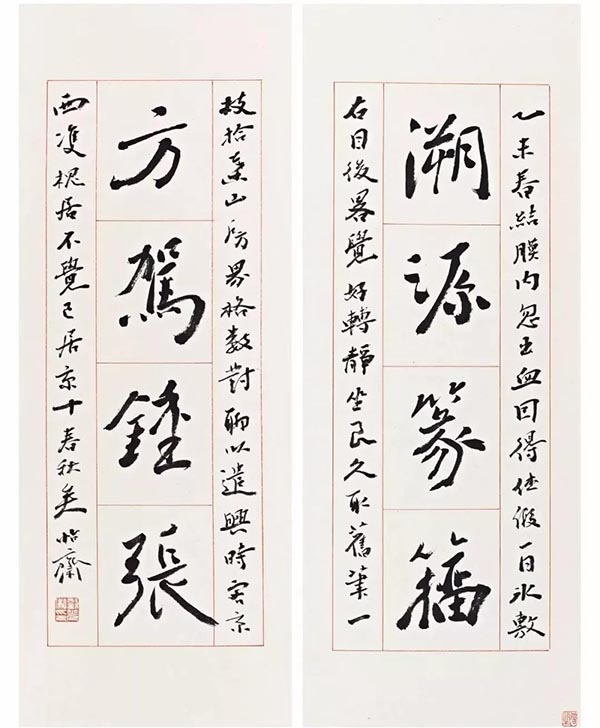 乙未春結膜内忽出血因得休假一日冰敷
溯源篆籀
右目後畧覺好轉靜坐良久取舊筆一
枝拾山房界格數對聊以遣興時客京
方駕鍾張
西雙槐居不覺已居京十春秋矣 怡齋